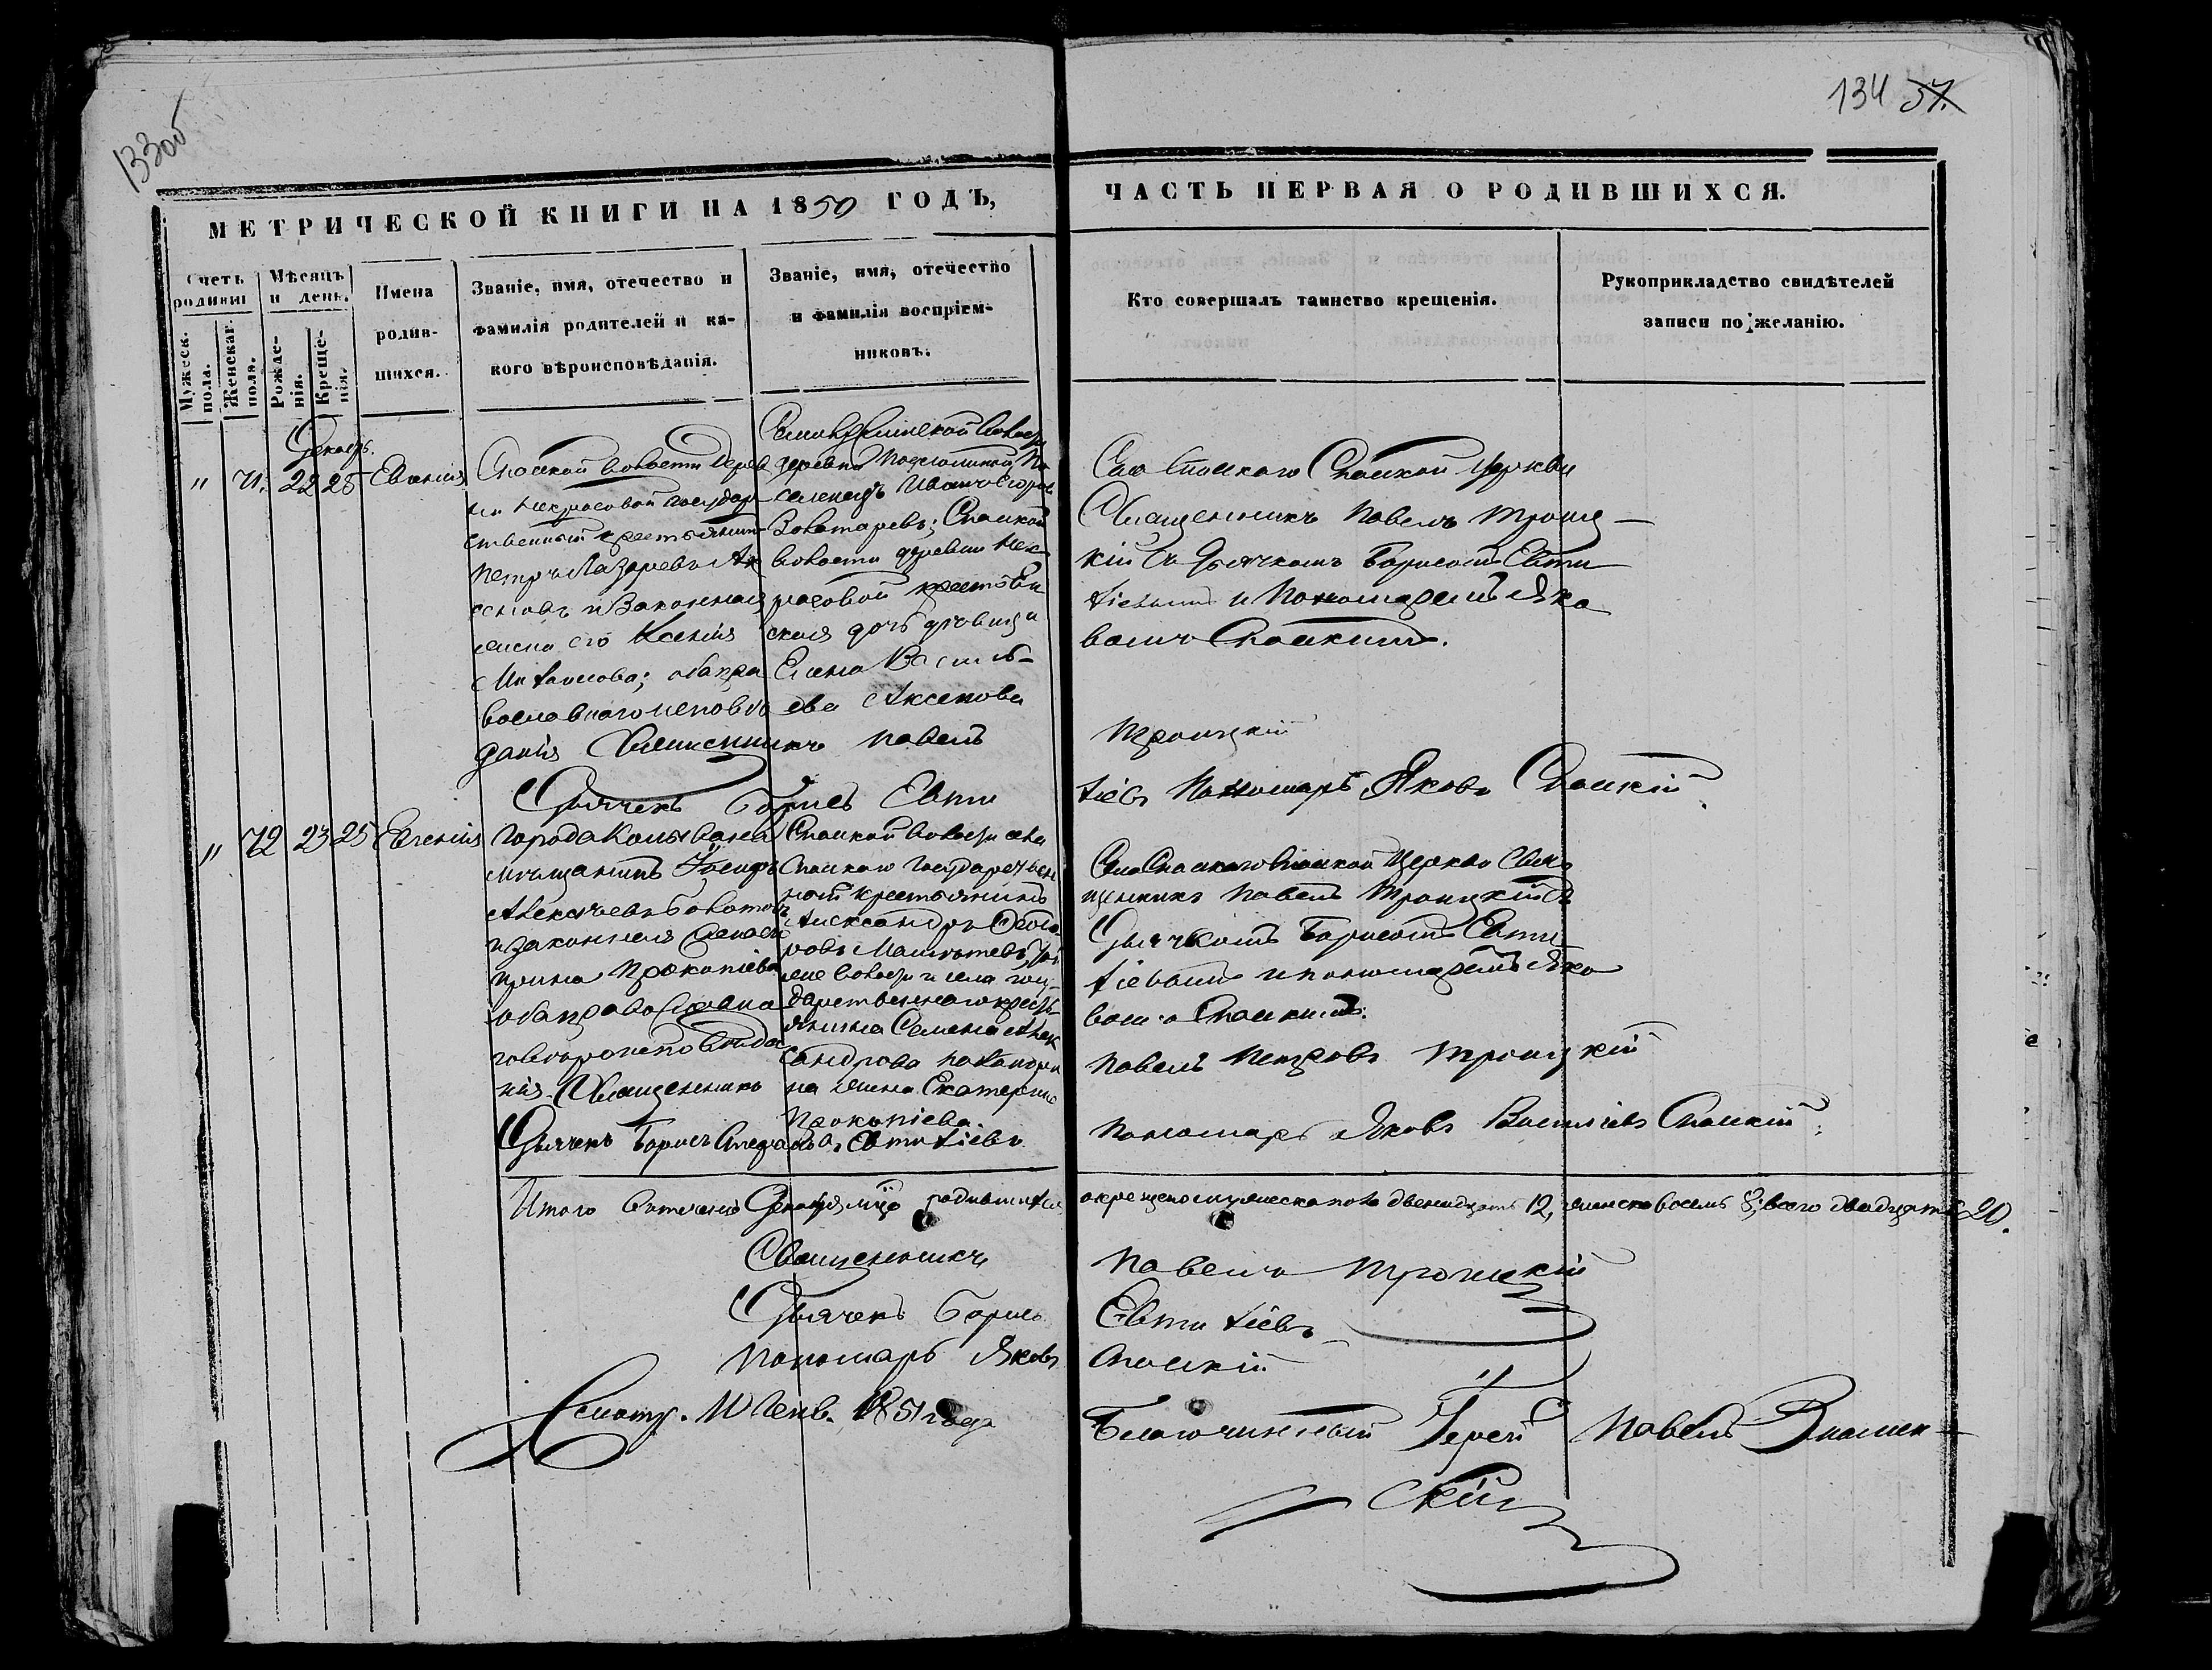 133об
134 37.
МЕТРИЧЕСКОЙ КНИГИ НА 1850 ГОДЪ,
ЧАСТЬ ПЕРВАЯ О РОДИВШИХСЯ.
Счетъ родивш
Мужеск. пола.
Женскаг. пола.
Мѣсяцъ и день.
Рожде-
нія.
Креще-
нія.
Имена
родив-
шихся.
Званіе, имя, отечество и
фамилія родителей и ка-
кого вѣроисповѣданія.
Званіе, имя, отечество
и фамилія воспріем-
никовъ.
Кто совершалъ таинство крещенія.
Рукоприкладство свидѣтелей
записи по желанію.
Декабр.
" 71. 22 28
Спаской волости дерев
ни Некрасовой государ
ственный крестьянинъ
Петръ Лазаревъ Ак
сеновъ и законная
жена его Ксенія
обапра
вославнаго исповѣ
данія Священникъ Павелъ
Дьячекъ Борисъ Евти
волости
деревни По
селенецъ Иванъ Егоров
Золотаревъ; Спаской
волости деревни Нек
расовой крестьян
ская дочь дѣвица
Елена Василь-
ева Аксенова
Села Спаскаго Спаской церкви
Священникъ Павелъ Троиц-
кій съ Дьячкомъ Борисомъ Евти
хіевымъ и Пономаремъ Яко
вомъ Спаскимъ.
Троицкій
хіевъ Пономарь Яковъ Спаскій.
" 72 23 25 Евгенія
Города Колывана
мѣщанинъ Іосифъ
Алексѣевъ
и законная
Прокопіева
оба православна
го вѣроисповѣда
нія. Священникъ
Дьячекъ Борисъ Евтихіевъ
Спаской волости села
Спаскаго Государствен
ной крестьянинъ
Александръ Ѳедо
ровъ
волости и села госу-
дарственнаго кресть-
янина Семена Алек
сандрова
на жена Екатерина
Прокопіева.
Села Спаскаго Спаской Церкви Свя
щенникъ Павелъ Троицкій съ
Дьячкомъ Борисомъ Евти
хіевымъ и пономаремъ Яко
вомъ Спаскимъ.
Павелъ Петровъ Троицкій
Пономарь Яковъ Васильевъ Спаскій.
Итого въ теченіе Декабря мѣсяца родившихся
и крещено мужеска пола двенадцать 12, женска восемь 8; всего двадцать 20.
Священникъ Павелъ Троицкій
Дьячекъ Борисъ Евтихіевъ
Пономарь Яковъ Спаскій
10 Генв. 1851 года
Благочинный Іерей Павелъ Знамен-
скій